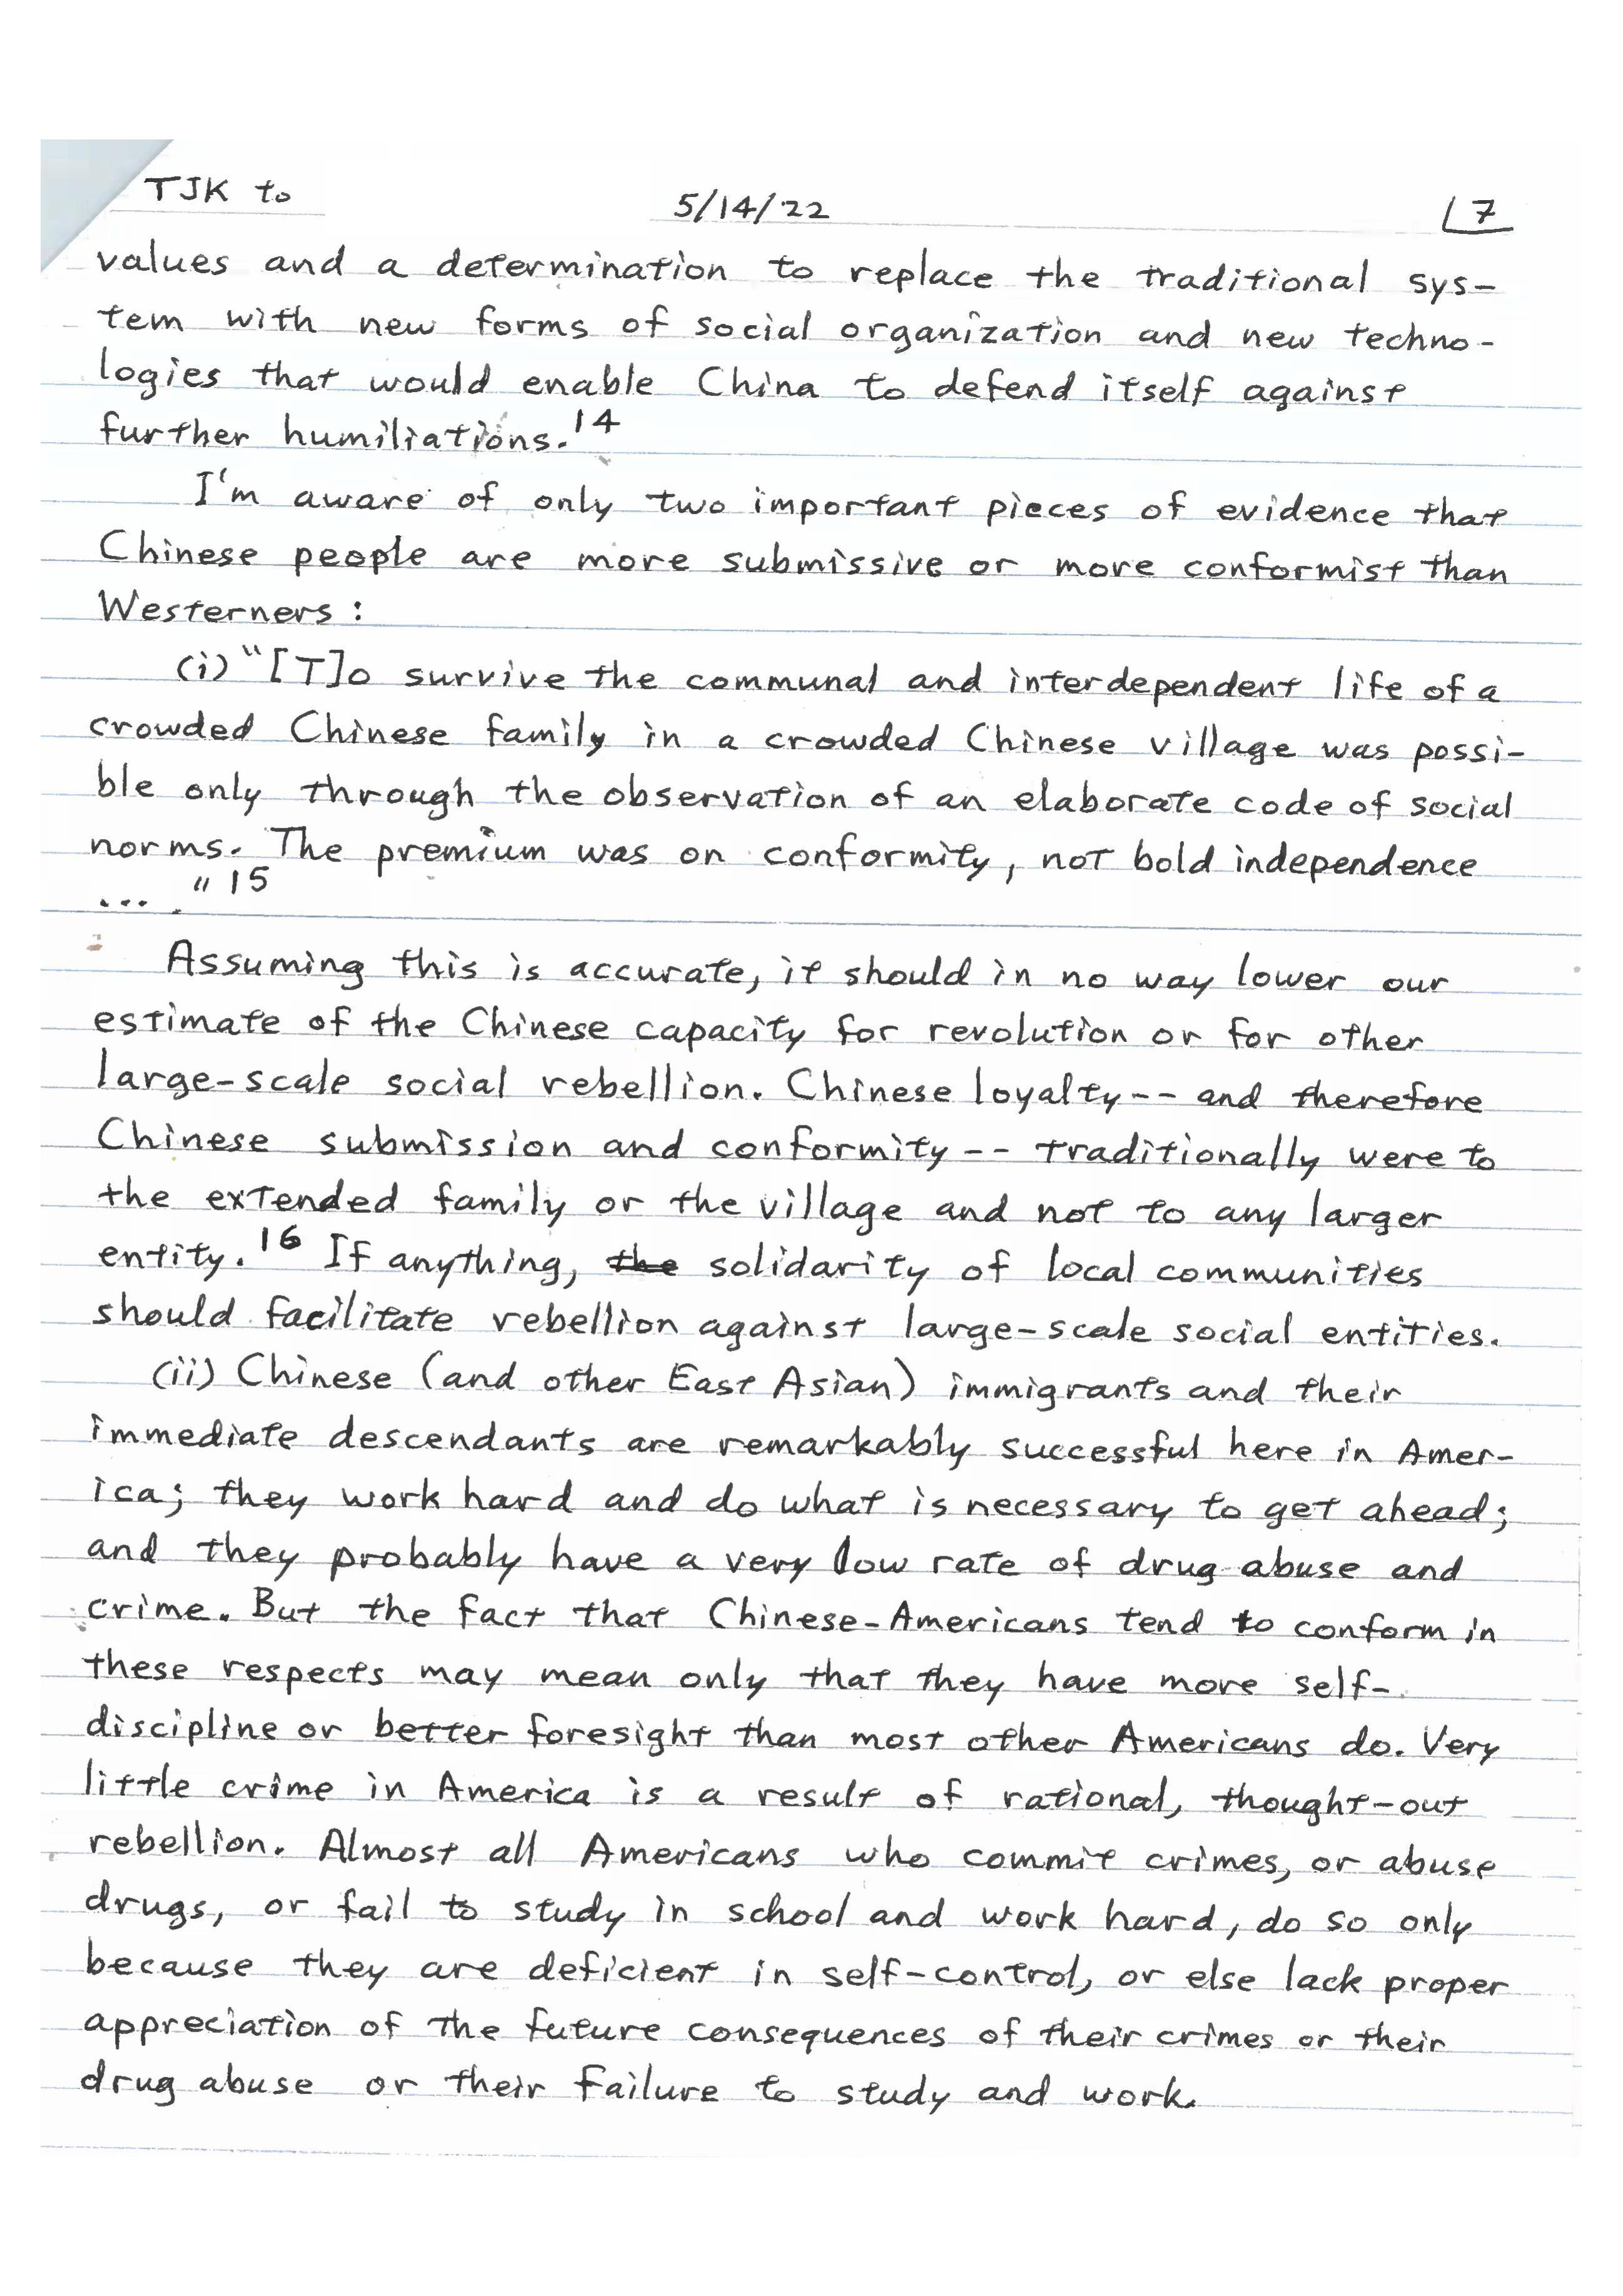 TJK to
5/14/22
7
values and a determination to replace the traditional sys-
tem with new forms of social organization and new techno-
logies that would enable China to defend itself against
further humiliations.14
I'm aware of only two important pieces of evidence that
Chinese people are more submissive or more conformist than
Westerners:
(i) "[T]o survive the communal and interdependent life of a
crowded Chinese family in a crowded Chinese village was possi-
ble only through the observation of an elaborate code of social
norms. The premium was on conformity, not bold independence
... ."15
Assuming this is accurate, it should in no way lower our
estimate of the Chinese capacity for revolution or for other
large-scale social rebellion. Chinese loyalty -- and therefore
Chinese submission and conformity -- traditionally were to
the extended family or the village and not to any larger
entity.16 If anything, the solidarity of local communities
should facilitate rebellion against large-scale social entities.
(ii) Chinese (and other East Asian) immigrants and their
immediate descendants are remarkably successful here in Amer-
ica; they work hard and do what is necessary to get ahead;
and they probably have a very low rate of drug abuse and
crime. But the fact that Chinese-Americans tend to conform in
these respects may mean only that they have more self-
discipline or better foresight than most other Americans do. Very
little crime in America is a result of rational, thought-out
rebellion. Almost all Americans who commit crimes, or abuse
drugs, or fail to study in school and work hard, do so only
because they are deficient in self-control, or else lack proper
appreciation of the future consequences of their crimes or their
drug abuse or their failure to study and work.